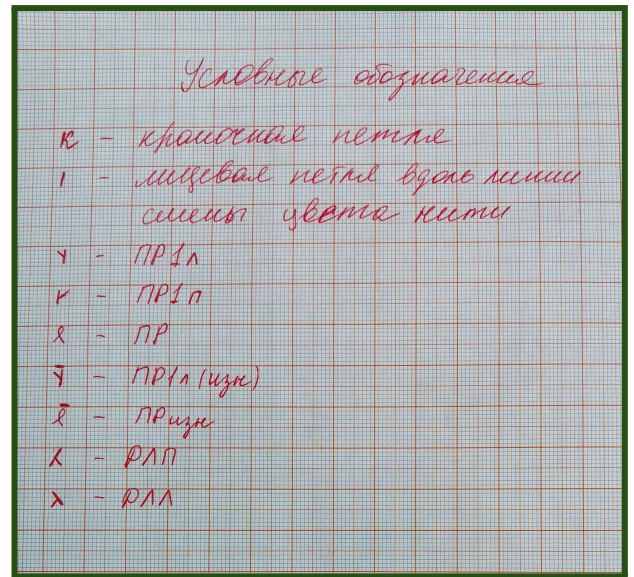 Условные обозначения
К - кромочная петля
| - лицевая петля вдоль линии
смены цвета нити
Y - ПР1л
Y - ПР1п
ꭗ - ПР
Ȳ - ПР1л (изн)
ꭗ̄ - ПРизн
⋌ - РЛП
λ - РЛЛ